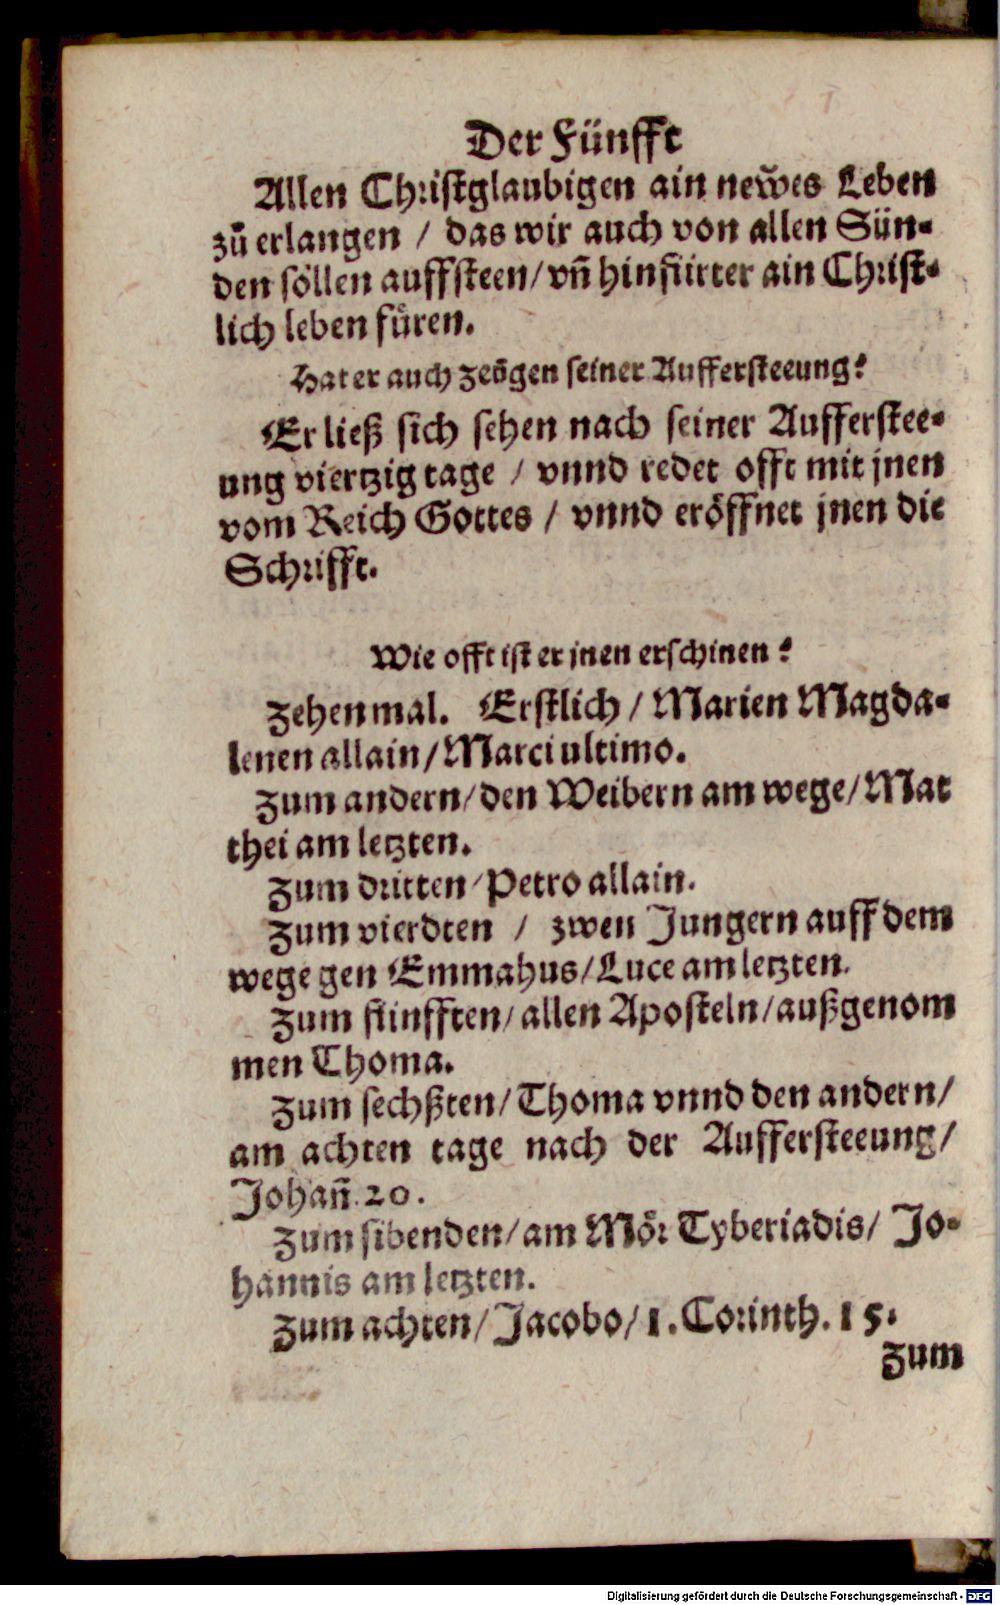 Der Fünfft
Allen Christglaubigen ain newes Leben
zů erlangen / das wir auch von allen Sün-
den söllen auffsteen / vñ hinfürter ain Christ-
lich leben fůren.
Hat er auch zeügen seiner Auffersteeung?
Er ließ sich sehen nach seiner Aufferstee-
ung viertzig tage / vnnd redet offt mit jnen
vom Reich Gottes / vnnd eröffnet jnen die
Schrifft.
Wie offt ist er jnen erschinen?
Zehen mal. Erstlich / Marien Magda-
lenen allain / Marci ultimo.
Zum andern / den Weibern am wege / Mat
thei am letzten.
Zum dritten / Petro allain.
Zum vierdten / zwen Jungern auff dem
wege gen Emmahus / Luce am letzten.
Zum fünfften / allen Aposteln / außgenom
men Thoma.
Zum sechßten / Thoma vnnd den andern /
am achten tage nach der Auffersteeung /
Johañ. 20.
Zum sibenden / am Mör Tyberiadis / Jo-
hannis am letzten.
Zum achten / Jacobo / 1. Corinth. 15.
Zum
Digitalisierung gefördert durch die Deutsche Forschungsgemeinschaft - DFG